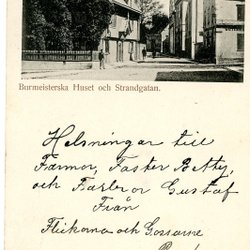 Burmeisterska Huset och Strandgatan.
Helsningar till
Farmor, Faster Betty,
och Farbror Gustaf
Från
Flickorna och Gossarne